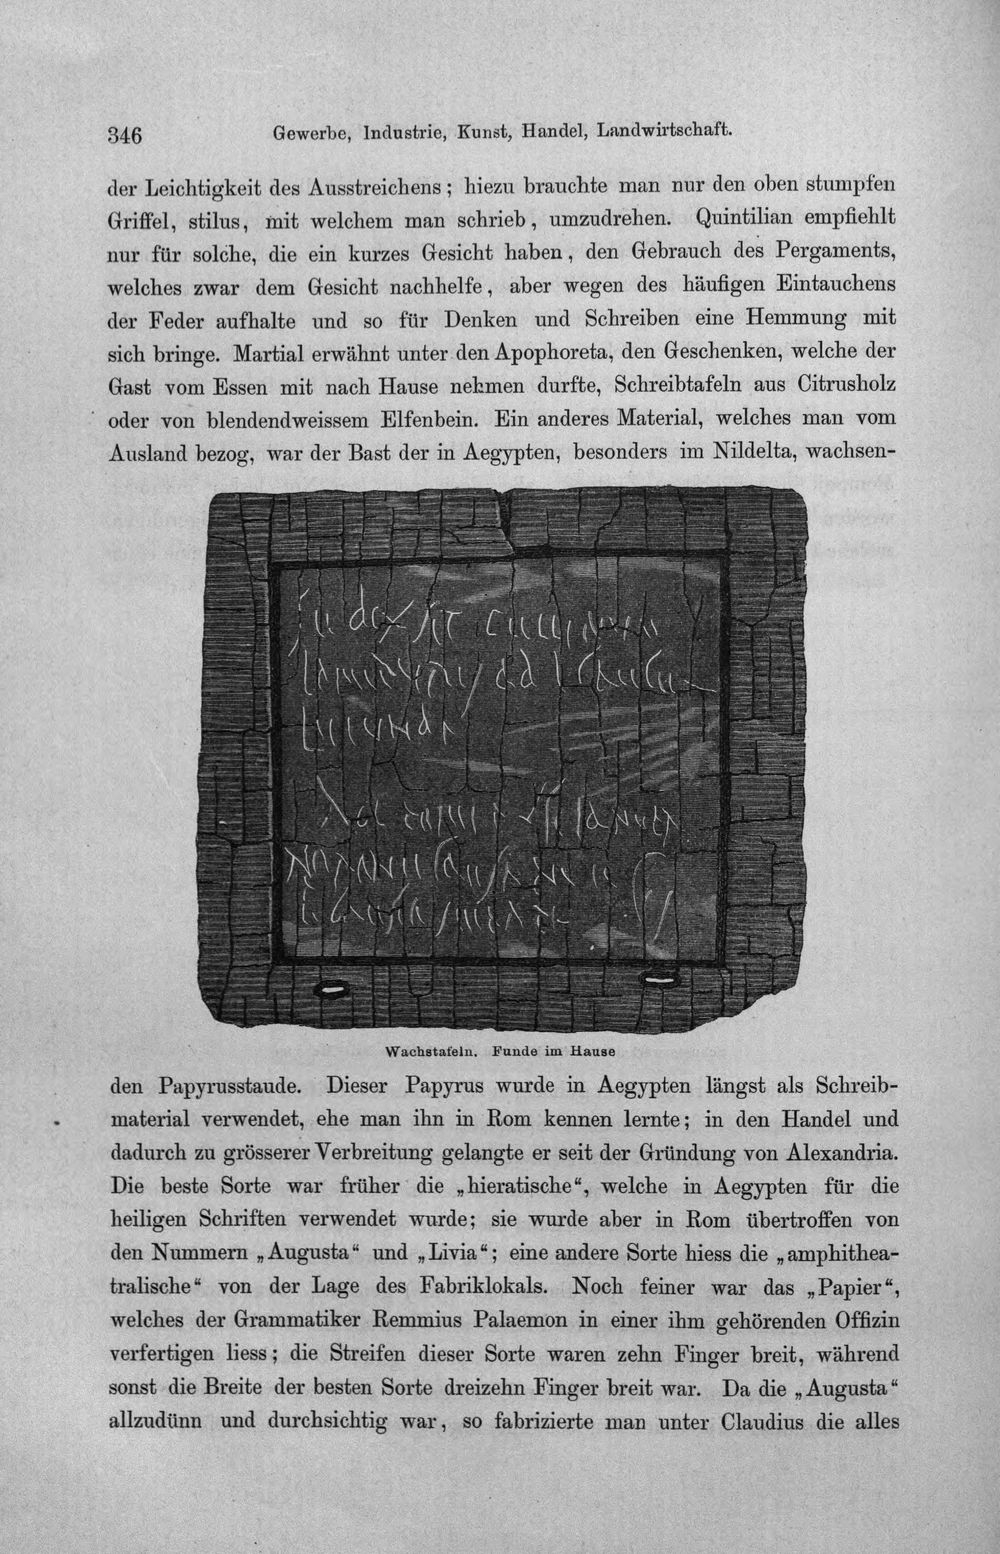 346
Gewerbe, Industrie, Kunst, Handel, Landwirtschaft.
der Leichtigkeit des Ausstreichens; hiezu brauchte man nur den oben stumpfen
Griffel, stilus, mit welchem man schrieb, umzudrehen. Quintilian empfiehlt
nur für solche, die ein kurzes Gesicht haben, den Gebrauch des Pergaments,
welches zwar dem Gesicht nachhelfe, aber wegen des häufigen Eintauchens
der Feder aufhalte und so für Denken und Schreiben eine Hemmung mit
sich bringe. Martial erwähnt unter den Apophoreta, den Geschenken, welche der
Gast vom Essen mit nach Hause nehmen durfte, Schreibtafeln aus Citrusholz
oder von blendendweissem Elfenbein. Ein anderes Material, welches man vom
Ausland bezog, war der Bast der in Aegypten, besonders im Nildelta, wachsen-
Wachstafeln. Funde im Hause
den Papyrusstaude. Dieser Papyrus wurde in Aegypten längst als Schreib-
material verwendet, ehe man ihn in Rom kennen lernte; in den Handel und
dadurch zu grösserer Verbreitung gelangte er seit der Gründung von Alexandria.
Die beste Sorte war früher die „hieratische“, welche in Aegypten für die
heiligen Schriften verwendet wurde; sie wurde aber in Rom übertroffen von
den Nummern „Augusta“ und „Livia“; eine andere Sorte hiess die „amphithea-
tralische“ von der Lage des Fabriklokals. Noch feiner war das „Papier“,
welches der Grammatiker Remmius Palaemon in einer ihm gehörenden Offizin
verfertigen liess; die Streifen dieser Sorte waren zehn Finger breit, während
sonst die Breite der besten Sorte dreizehn Finger breit war. Da die „Augusta“
allzudünn und durchsichtig war, so fabrizierte man unter Claudius die alles